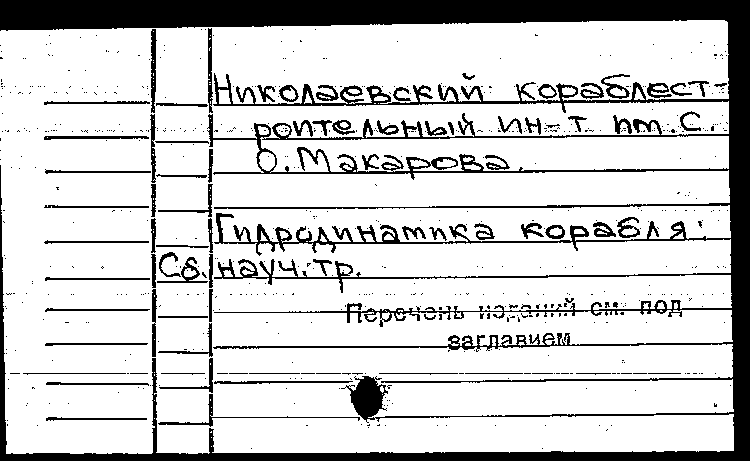 Николаевский кораблест-
роительный ин-т им. С.
О. Макарова.
Гидродинамика корабля:
Сб. науч. тр.
Перечень изданий см. под
заглавием